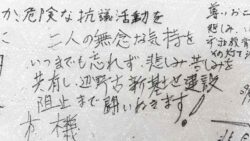 か危険な抗議活動を
二人の無念な気持を
いつまでも忘れず、悲しみ、苦しみを
共有し、辺野古新基地建設
阻止まで闘いぬきます!
尊いお
悲しみ、い